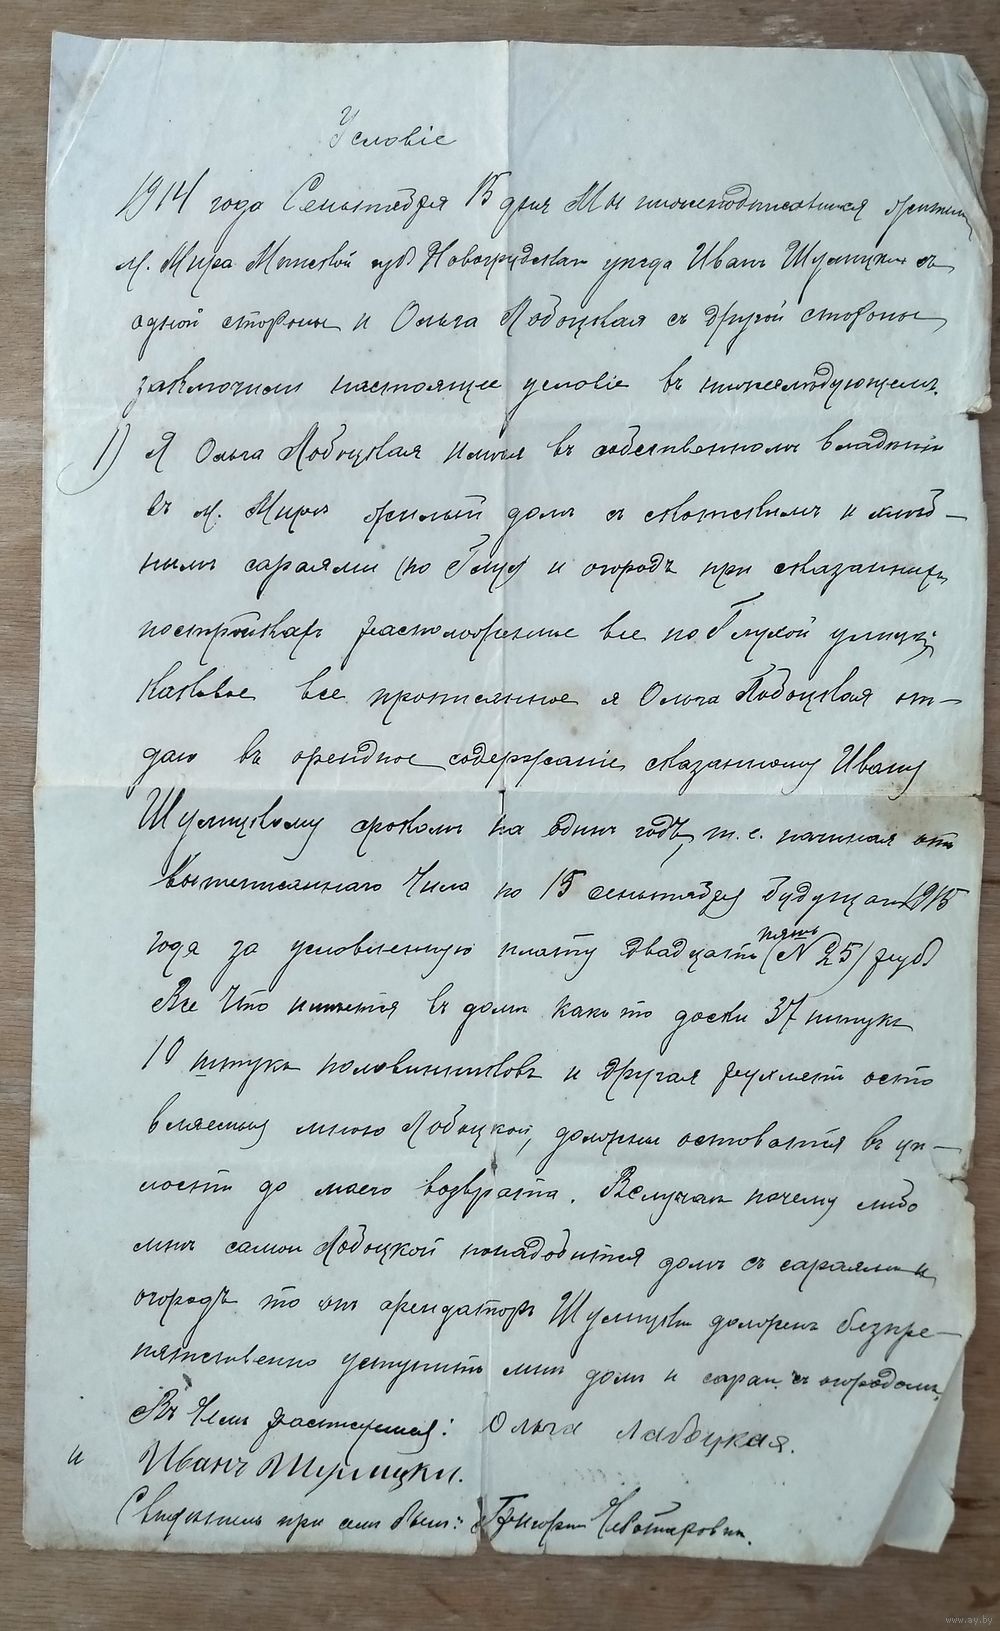 Условіе
1914 года Сентября 15 дня Мы нижеподписавшіися жители
м. Мира Минской губ Новогрудскаго уезда Иванъ Шулицкій съ
одной стороны и Ольга Лобоцкая съ другой стороны
заключили настоящее условіе въ нижеследующемъ.
1) Я Ольга Лобоцкая имея въ собственномъ владеніи
въ м. Мире жилый домъ съ скотскимъ и хлеб-
нымъ сараями (по Глух) и огородъ при сказанныхъ
постройкахъ расположенные все по Глухой улице,
каковое все прописанное я Ольга Лобоцкая от-
даю въ орендное содержаніе сказанному Ивану
Шулицкому срокомъ на одинъ годъ, т. е. начиная отъ
вышеписаннаго Числа по 15 сентября будущаго 1915
года за условленную плату двадцать пять (№ 25) руб
Все Что имеется въ доме како то доски 37 штукъ
10 штукъ половинниковъ и другая рухлядь оста
вляемыя мною Лобоцкой, должны оставатся въ це-
лости до моего возврата. Вслучаи почему либо
мне самои Лобоцкой понадобится домъ съ сараями и
огородъ то онъ арендаторъ Шулицкій долженъ безпре-
пятственно уступить мне домъ и сараи съ огородомъ,
Въ Чемъ росписуемся: Ольга Лабоцкая.
и Иванъ Шулицки.
Свидетель при семъ былъ: Григорій Чеботаровичъ.
www.ay.by